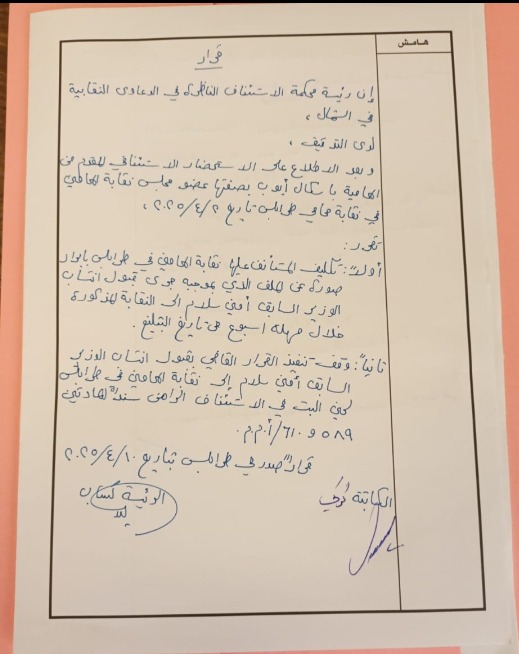 هامش
قرار
إن رئيسة محكمة الاستئناف الناظرة في الدعاوى النقابية
في الشمال ،
لدى التدقيق ،
وبعد الاطلاع على الاستحضار الاستئنافي المقدم من
المحامية باسكال أيوب بصفتها عضو مجلس نقابة المحامين
في نقابة محامي طرابلس تاريخ ٢/٤/٢٠٢٥ ،
تقرر :
أولاً : تكليف المستأنف عليها نقابة المحامين في طرابلس بإبراز
صورة عن الملف الذي بموجبه جرى قبول انتساب
الوزير السابق أمين سلام الى النقابة المذكورة
خلال مهلة اسبوع من تاريخ التبليغ .
ثانياً : وقف تنفيذ القرار القاضي بقبول انتساب الوزير
السابق أمين سلام إلى نقابة المحامين في طرابلس
لحين البت في الاستئناف الراهن سنداً للمادتين
٥٨٩ و ٦١٠/أ.م.م.
قراراً صدر في طرابلس بتاريخ ١٠/٤/٢٠٢٥
الكاتبة الرئيسة